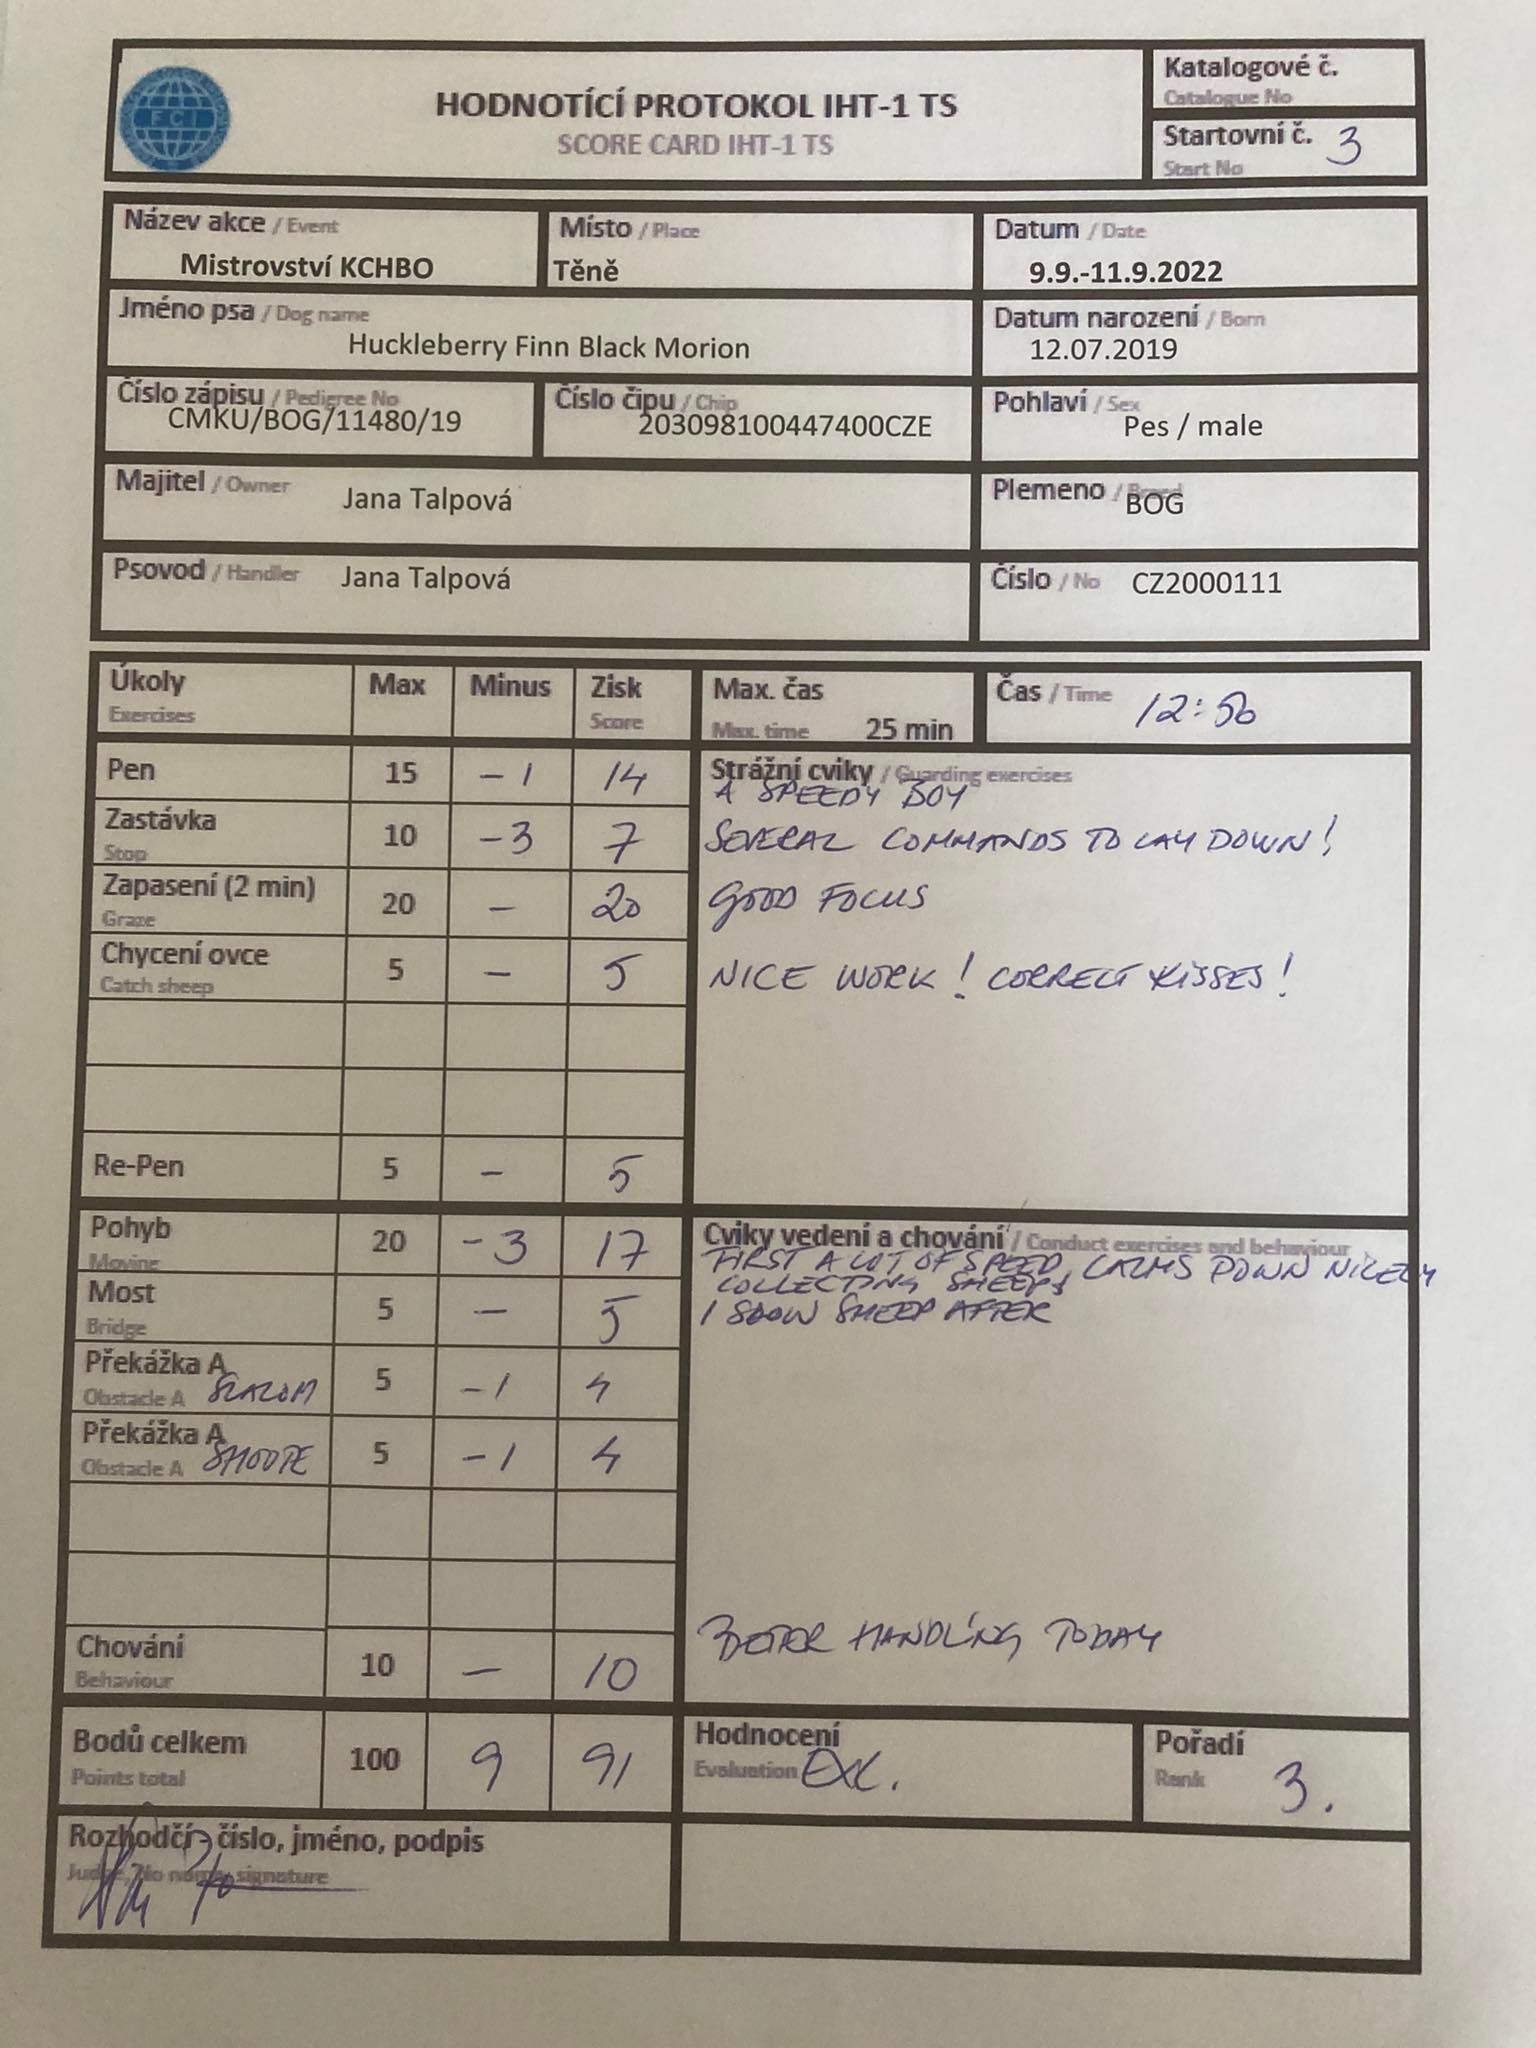 FCI
HODNOTÍCÍ PROTOKOL IHT-1 TS
SCORE CARD IHT-1 TS
Katalogové č.
Catalogue No
Startovní č. 3
Start No
Název akce / Event
Mistrovství KCHBO
Místo / Place
Těně
Datum / Date
9.9.-11.9.2022
Jméno psa / Dog name
Huckleberry Finn Black Morion
Datum narození / Born
12.07.2019
Číslo zápisu / Pedigree No
CMKU/BOG/11480/19
Číslo čipu / Chip
203098100447400CZE
Pohlaví / Sex
Pes / male
Majitel / Owner Jana Talpová
Plemeno / Breed
BOG
Psovod / Handler Jana Talpová
Číslo / No CZ2000111
Úkoly Max Minus Zisk
Exercises Score
Max. čas
Max. time 25 min
Čas / Time 12:56
Pen 15 -1 14
Strážní cviky / Guarding exercises
A SPEEDY BOY
Zastávka 10 -3 7
Stop
SEVERAL COMMANDS TO LAY DOWN!
Zapasení (2 min) 20 - 20
Graze
GOOD FOCUS
Chycení ovce 5 - 5
Catch sheep
NICE WORK! CORRECT KISSES!
Re-Pen 5 - 5
Pohyb 20 -3 17
Moving
Cviky vedení a chování / Conduct exercises and behaviour
FIRST A LOT OF SPEED, CALMS DOWN NICELY
COLLECTING SHEEPS
1 SLOW SHEEP AFTER
Most 5 - 5
Bridge
Překážka A 5 -1 4
Obstacle A SLALOM
Překážka A 5 -1 4
Obstacle A
Chování 10 - 10
Behaviour
HANDLING TODAY
Bodů celkem 100 9 91
Points total
Hodnocení
Evaluation Exc.
Pořadí
Rank 3.
Rozhodčí - číslo, jméno, podpis
Judge, No name, signature